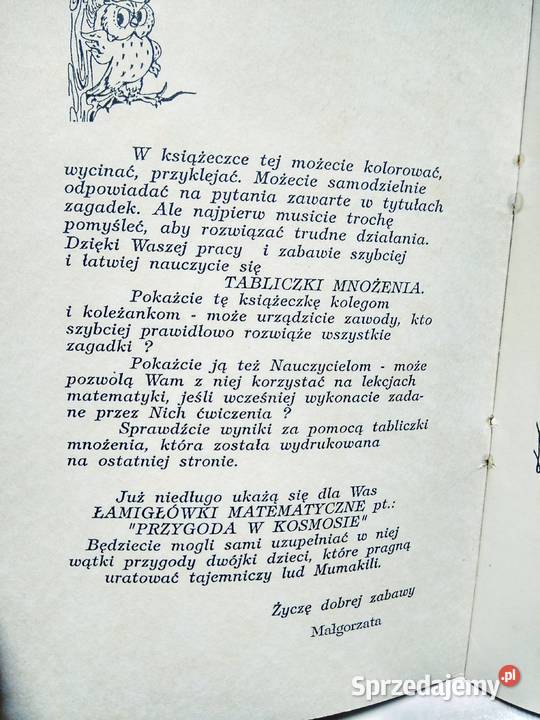 W książeczce tej możecie kolorować,
wycinać, przyklejać. Możecie samodzielnie
odpowiadać na pytania zawarte w tytułach
zagadek. Ale najpierw musicie trochę
pomyśleć, aby rozwiązać trudne działania.
Dzięki Waszej pracy i zabawie szybciej
i łatwiej nauczycie się
TABLICZKI MNOŻENIA.
Pokażcie tę książeczkę kolegom
i koleżankom - może urządzicie zawody, kto
szybciej prawidłowo rozwiąże wszystkie
zagadki ?
Pokażcie ją też Nauczycielom - może
pozwolą Wam z niej korzystać na lekcjach
matematyki, jeśli wcześniej wykonacie zada-
ne przez Nich ćwiczenia ?
Sprawdźcie wyniki za pomocą tabliczki
mnożenia, która została wydrukowana
na ostatniej stronie.
Już niedługo ukażą się dla Was
ŁAMIGŁÓWKI MATEMATYCZNE pt.:
"PRZYGODA W KOSMOSIE"
Będziecie mogli sami uzupełniać w niej
wątki przygody dwójki dzieci, które pragną
uratować tajemniczy lud Mumakili.
Życzę dobrej zabawy
Małgorzata
Sprzedajemy.pl